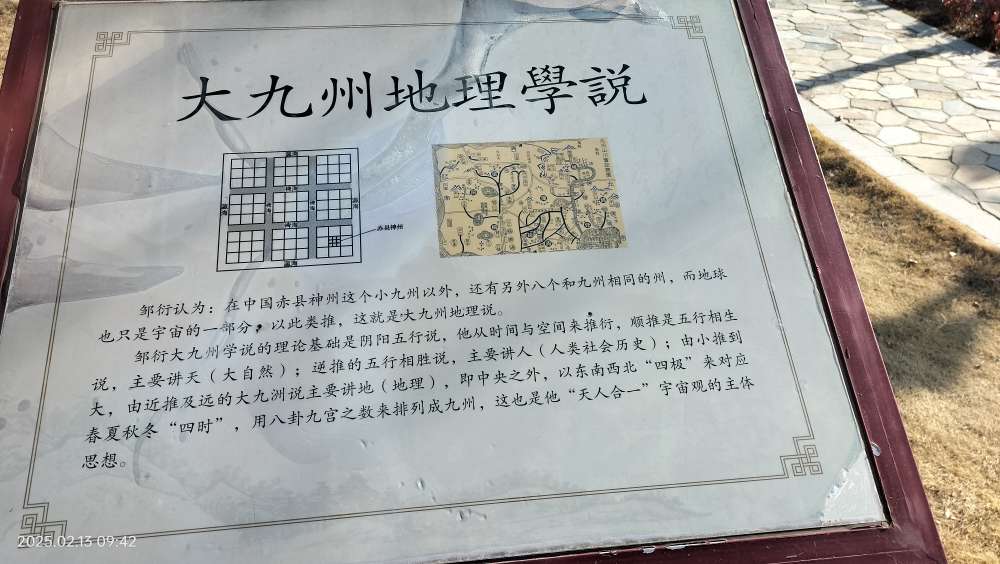 大九州地理學説
瀛海
裨海
瀛海
裨海
裨海
瀛海
裨海
赤县神州
瀛海
邹衍认为：在中国赤县神州这个小九州以外，还有另外八个和九州相同的州，而地球
也只是宇宙的一部分，以此类推，这就是大九州地理说。
邹衍大九州学说的理论基础是阴阳五行说，他从时间与空间来推衍，顺推是五行相生
说，主要讲天（大自然）；逆推的五行相胜说，主要讲人（人类社会历史）；由小推到
大，由近推及远的大九洲说主要讲地（地理），即中央之外，以东南西北“四极”来对应
春夏秋冬“四时”，用八卦九宫之数来排列成九州，这也是他“天人合一”宇宙观的主体
思想。
2025.02.13 09:42